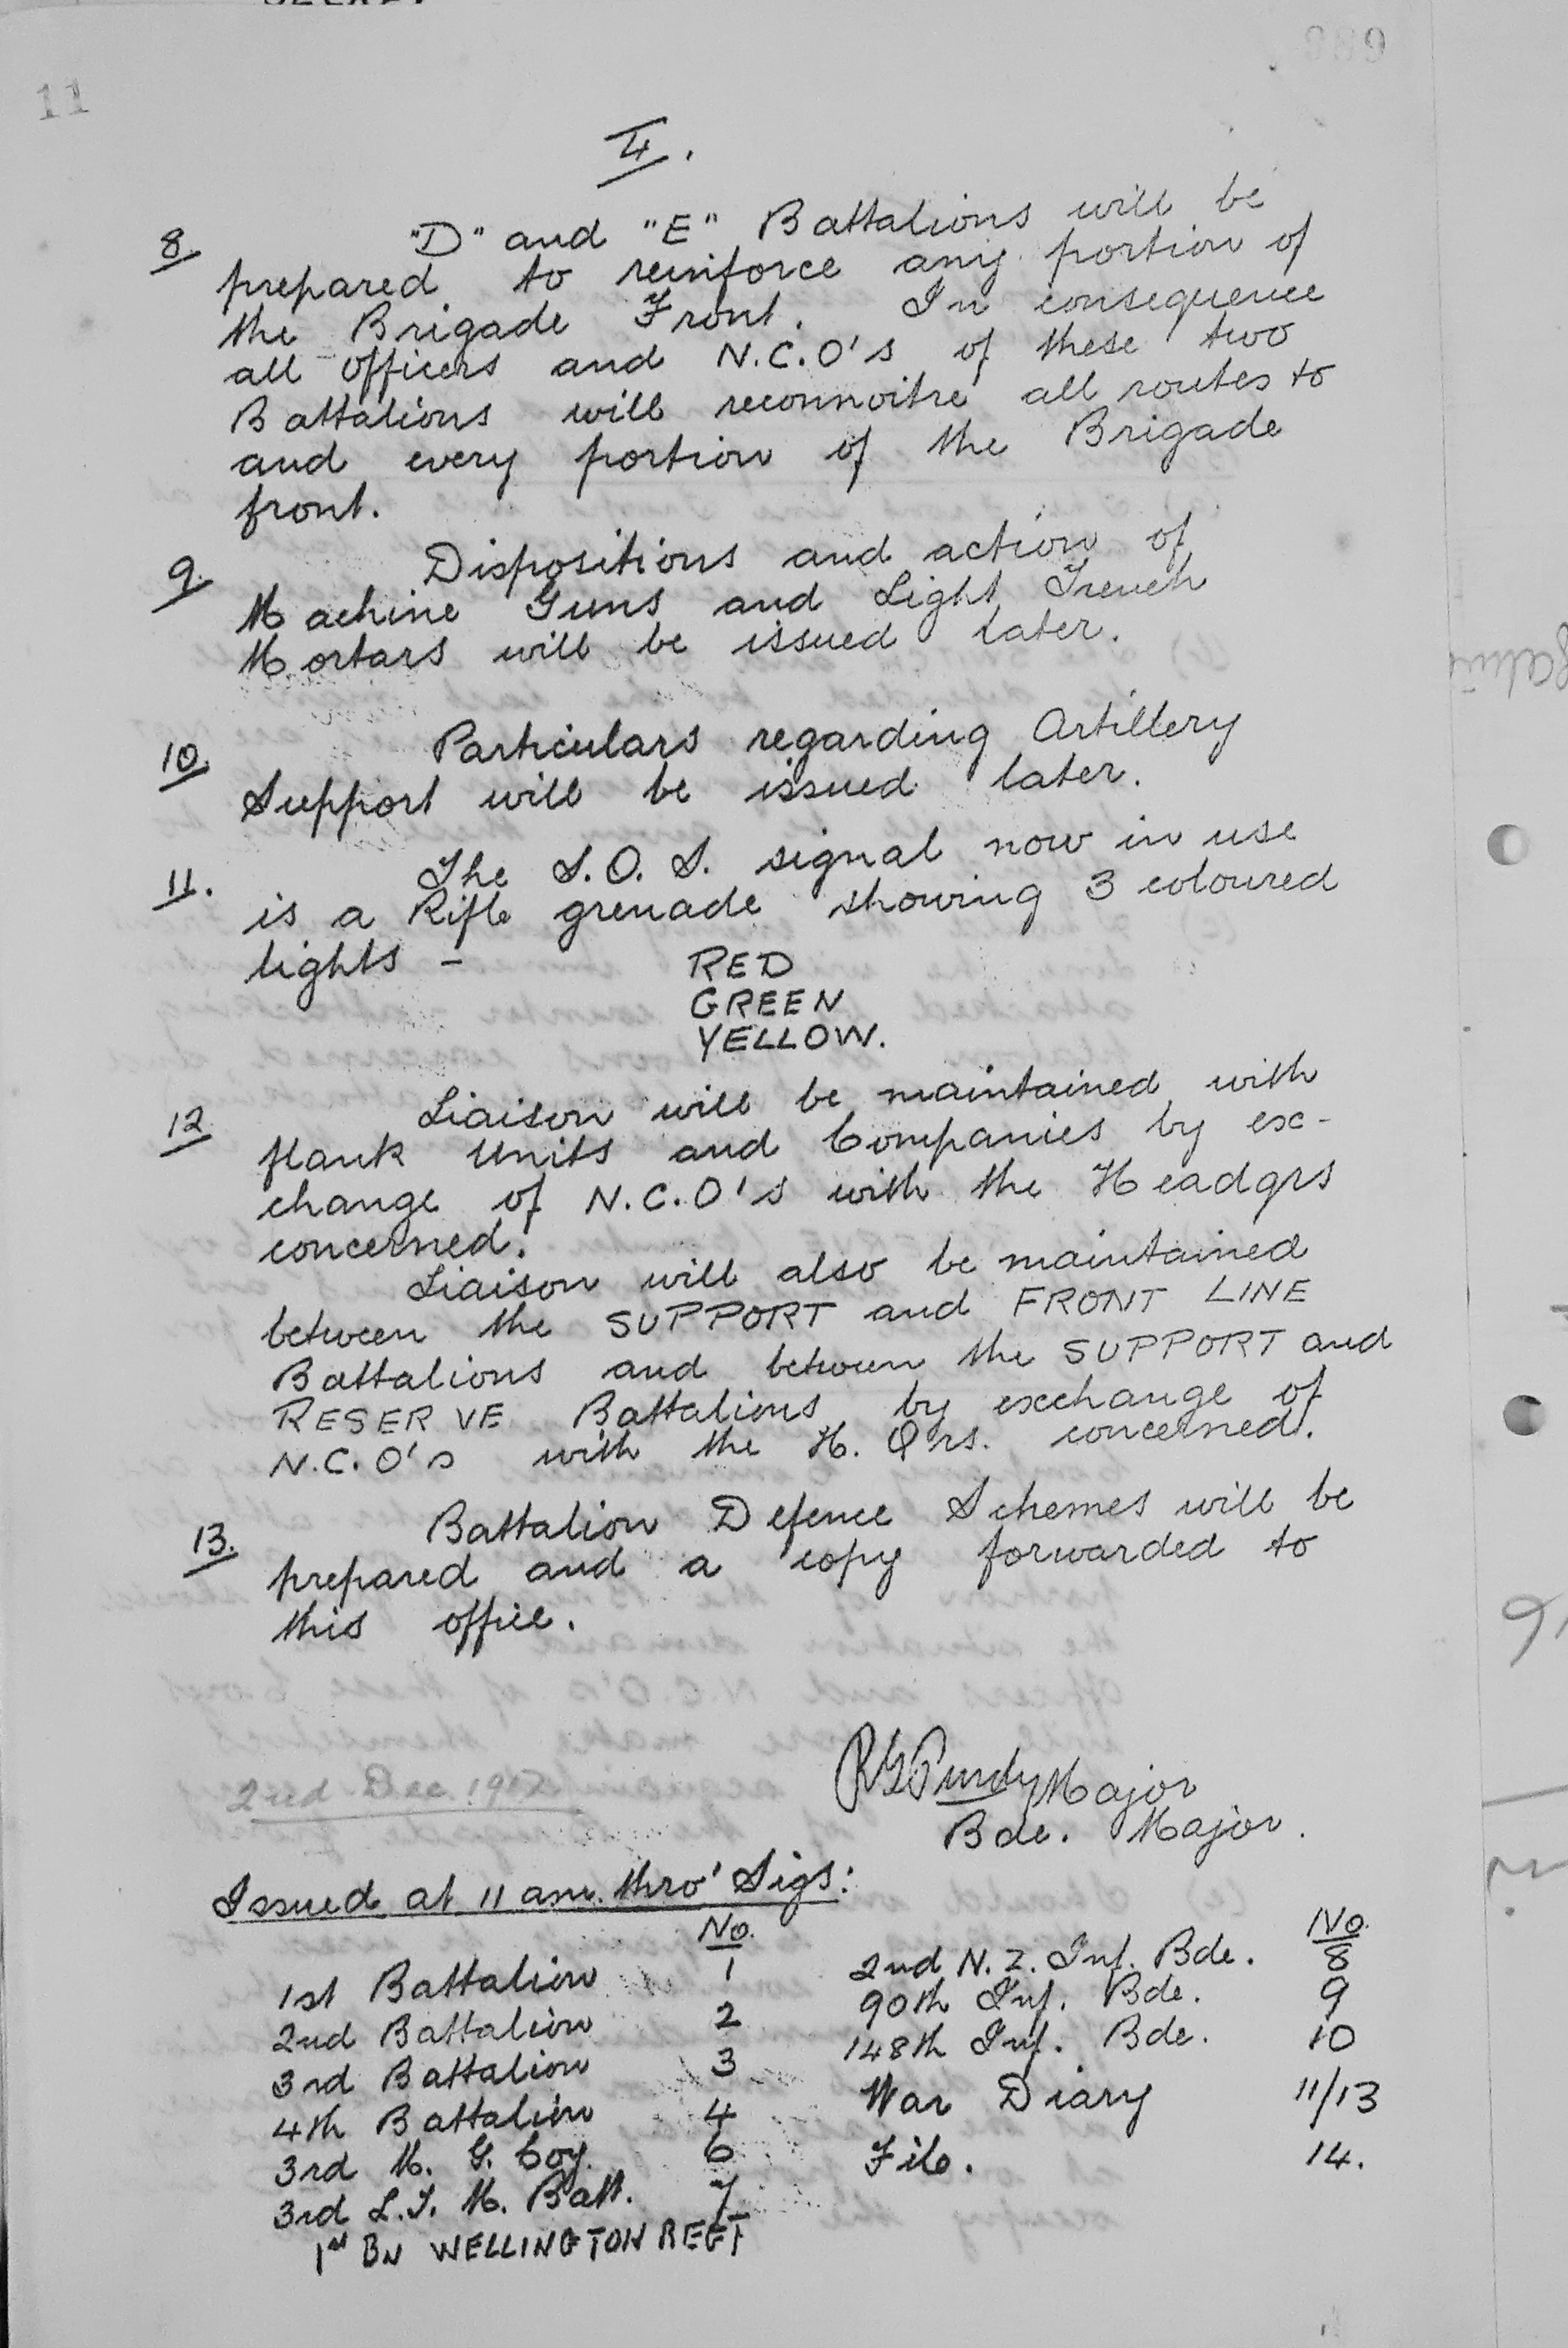 11
4.
8. "D" and "E" Battalions will be
prepared to reinforce any portion of
the Brigade Front. In consequence
all officers and N.C.O's of these two
Battalions will reconnoitre all routes to
and every portion of the Brigade
front.
9. Dispositions and action of
Machine Guns and Light Trench
Mortars will be issued later.
10. Particulars regarding Artillery
Support will be issued later.
11. The S.O.S. signal now in use
is a Rifle grenade showing 3 coloured
lights -
RED
GREEN
YELLOW.
12. Liaison will be maintained with
flank Units and Companies by ex-
change of N.C.O's with the Headqrs
concerned.
Liaison will also be maintained
between the SUPPORT and FRONT LINE
Battalions and between the SUPPORT and
RESERVE Battalions by exchange of
N.C.O's with the H. Qrs. concerned.
13. Battalion Defence Schemes will be
prepared and a copy forwarded to
this office.
RGPurdy Major
2nd Dec. 1917
Bde. Major.
Issued at 11 am. thro' Sigs:
No. No.
1st Battalion 1 2nd N.Z. Inf. Bde. 8
2nd Battalion 2 90th Inf. Bde. 9
3rd Battalion 3 148th Inf. Bde. 10
4th Battalion 4 War Diary 11/13
3rd M. G. Coy. 6 File. 14.
3rd L.T. M. Batt. 7
1st BN WELLINGTON REGT